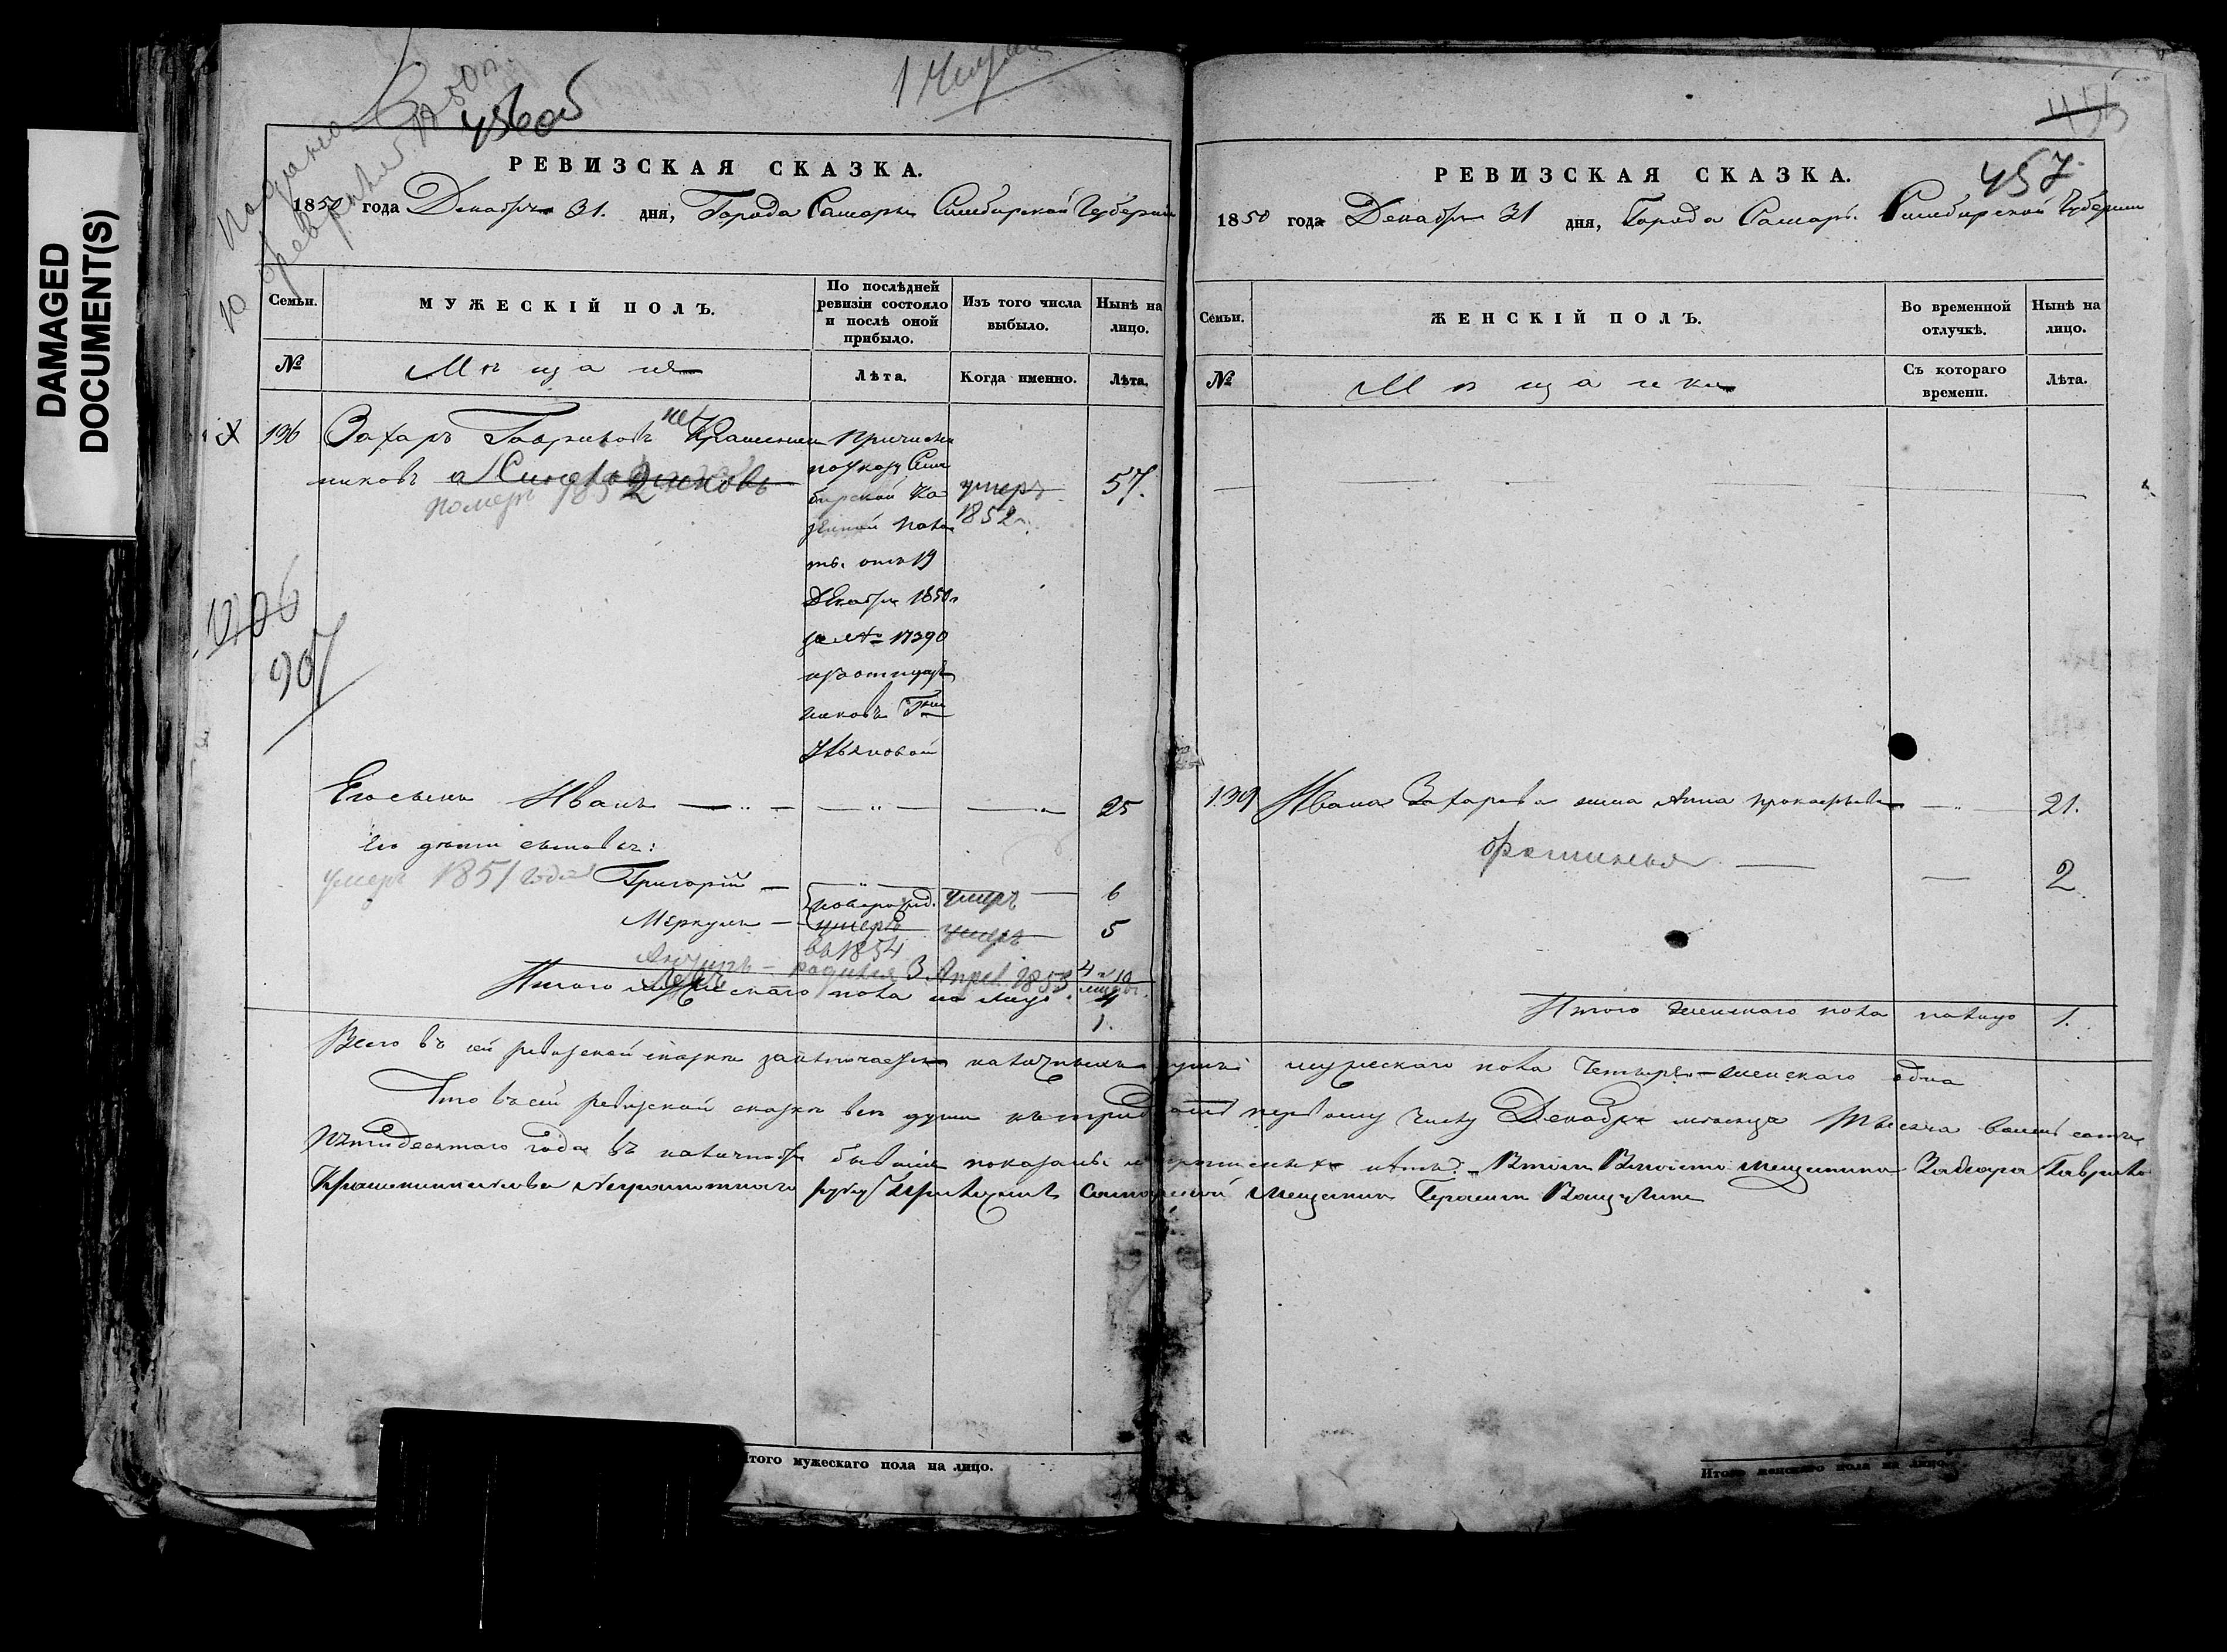 DAMAGED
DOCUMENT(S)
Подана
10 февраля 1850 г.
456 об
РЕВИЗСКАЯ СКАЗКА.
1850 года Декабря 31. дня, Города Самары Симбирской Губернии
Семьи.
МУЖЕСКІЙ ПОЛЪ.
По послѣдней
ревизіи состояло
и послѣ оной
прибыло.
Изъ того числа
выбыло.
Нынѣ на
лицо.
№
Мѣщане
Лѣта.
Когда именно.
Лѣта.
136 Захаръ Гавриловъ Крашенин
никовъ
померъ 1852
Причислен
по указу Сим
бирской Ка
зенной Пала
ты. отъ 19
Декабря 1850 г
за № 17390
изъ отпущен
никовъ Гжи
умеръ
1852 г.
57.
1206
907
Его сынъ Иванъ — " — — " — — " 25
Его дѣти сыновья:
умеръ 1851 года Григорій — " умеръ — 6
новорожд.
Меркулъ — умеръ умеръ 5
въ 1854
родился 3 Апрел 1853
Итого мужескаго пола на лицо. 4
1.
Итого мужескаго пола на лицо.
455
457
РЕВИЗСКАЯ СКАЗКА.
1850 года Декабря 31 дня, Города Самары Симбирской Губернии
Семьи.
ЖЕНСКІЙ ПОЛЪ.
Во временной
отлучкѣ.
Нынѣ на
лицо.
№
Мѣщанки
Съ котораго
времени.
Лѣта.
139 Ивана Захарова жена Анна Прокофьева — " — 21.
Фетинья — — 2
Итого женскаго пола налицо 1.
Всего въ сей ревизской сказкѣ заключается наличныхъ душъ мужескаго пола Четыре — женскаго одна
Что въ сей ревизской сказкѣ всѣ души къ тридцать первому числу Декабря мѣсяца Тысяча восемь сотъ
пятидесятаго года въ наличности бывшіе показаны и прописныхъ нѣтъ. — Мѣщанинъ Захаръ Гавриловъ
Крашенинниковъ Неграмотнаго руку приложилъ Самарской Мещанинъ Герасимъ
Итого женскаго пола на лицо.